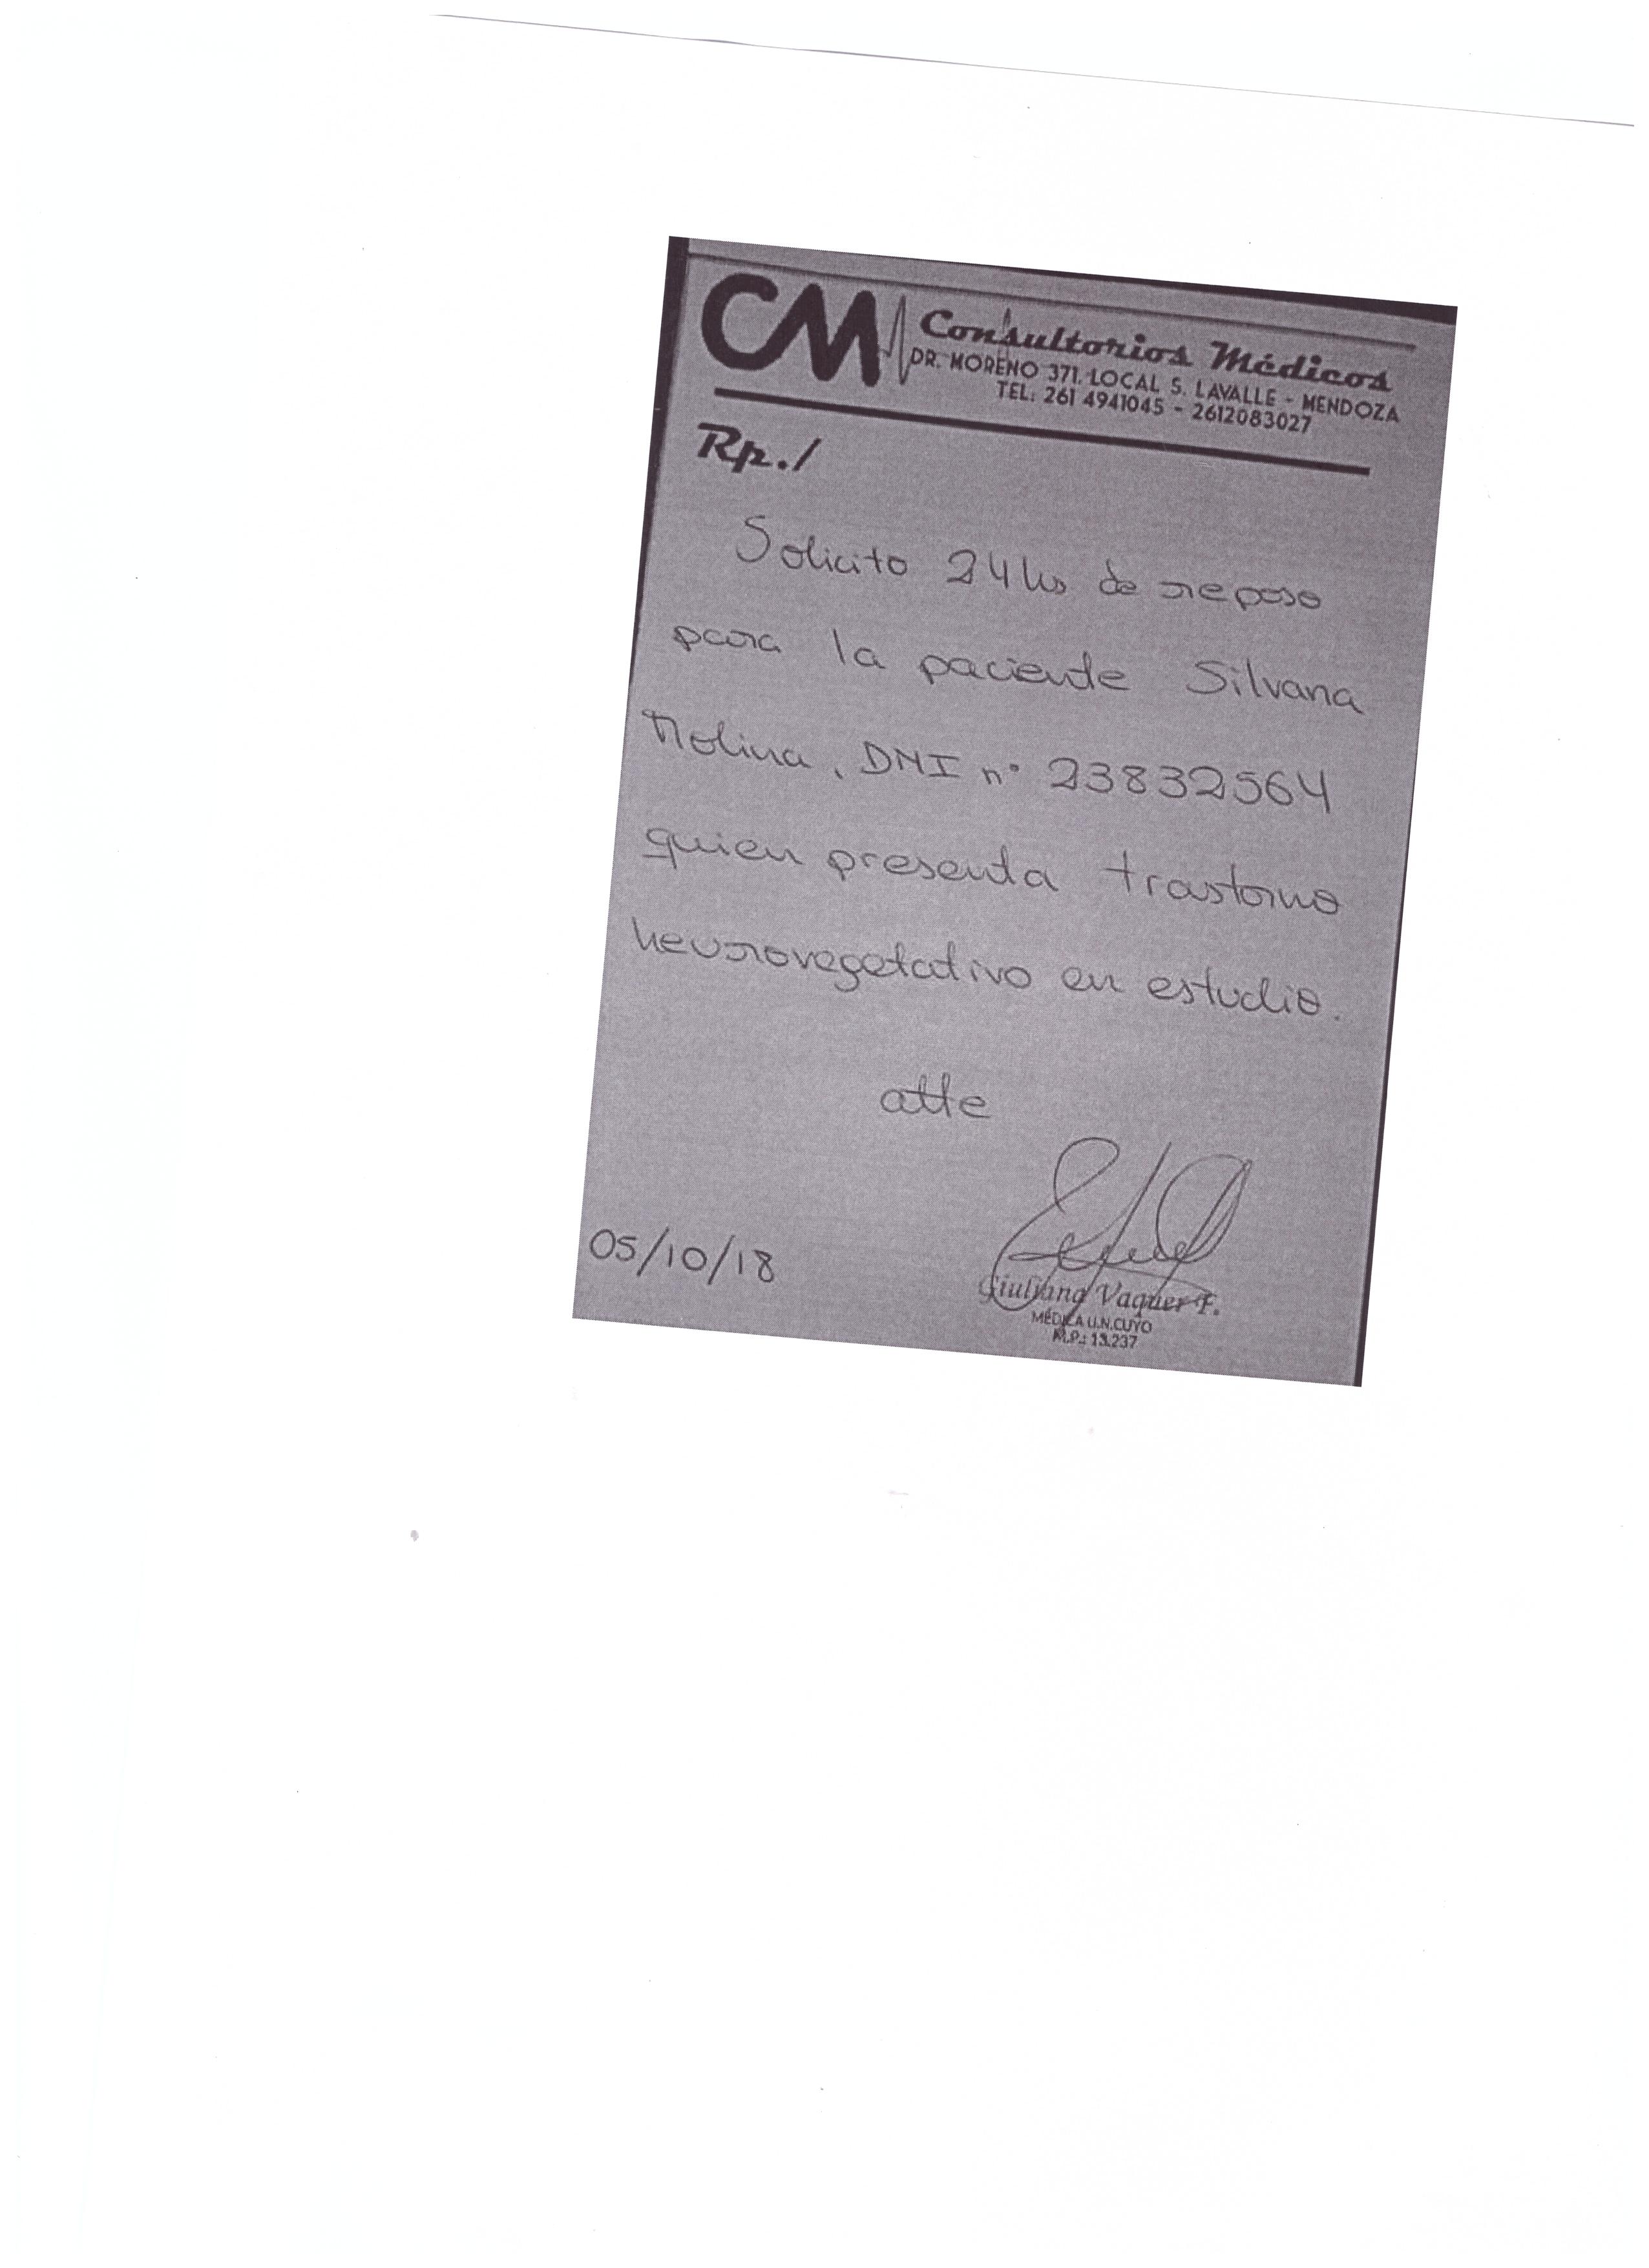 CM Consultorios Médicos
DR. MORENO 371. LOCAL S. LAVALLE - MENDOZA
TEL: 261 4941045 - 2612083027
Rp./
Solicito 24hs de reposo
para la paciente Silvana
Molina, DNI n° 23832564
quien presenta trastorno
neurovegetativo en estudio.
atte
05/10/18
Giuliana Vaquer F.
MÉDICA U.N.CUYO
M.P.: 13.237